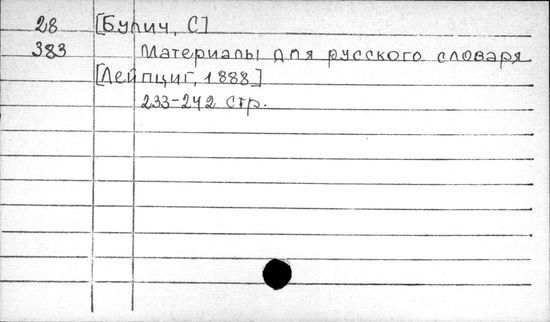 28 [Булич, С]
383 Материалы для русского словаря
[Лейпциг, 1888]
233-242 стр.